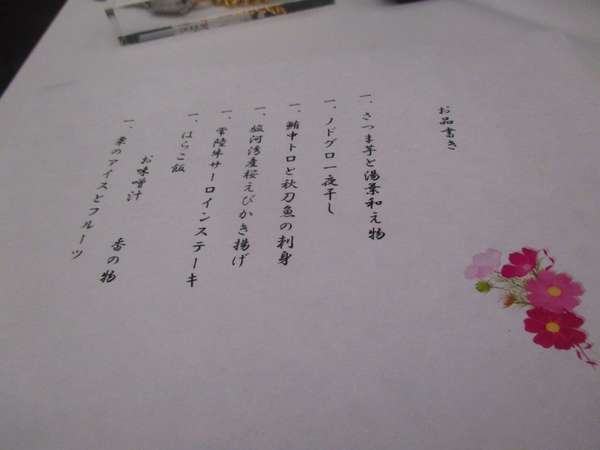 お品書き
一、さつま芋と湯葉和え物
一、ノドグロ一夜干し
一、鮪中トロと秋刀魚の刺身
一、駿河湾産桜えびかき揚げ
一、常陸牛サーロインステーキ
一、はらこ飯
お味噌汁　香の物
一、栗のアイスとフルーツ